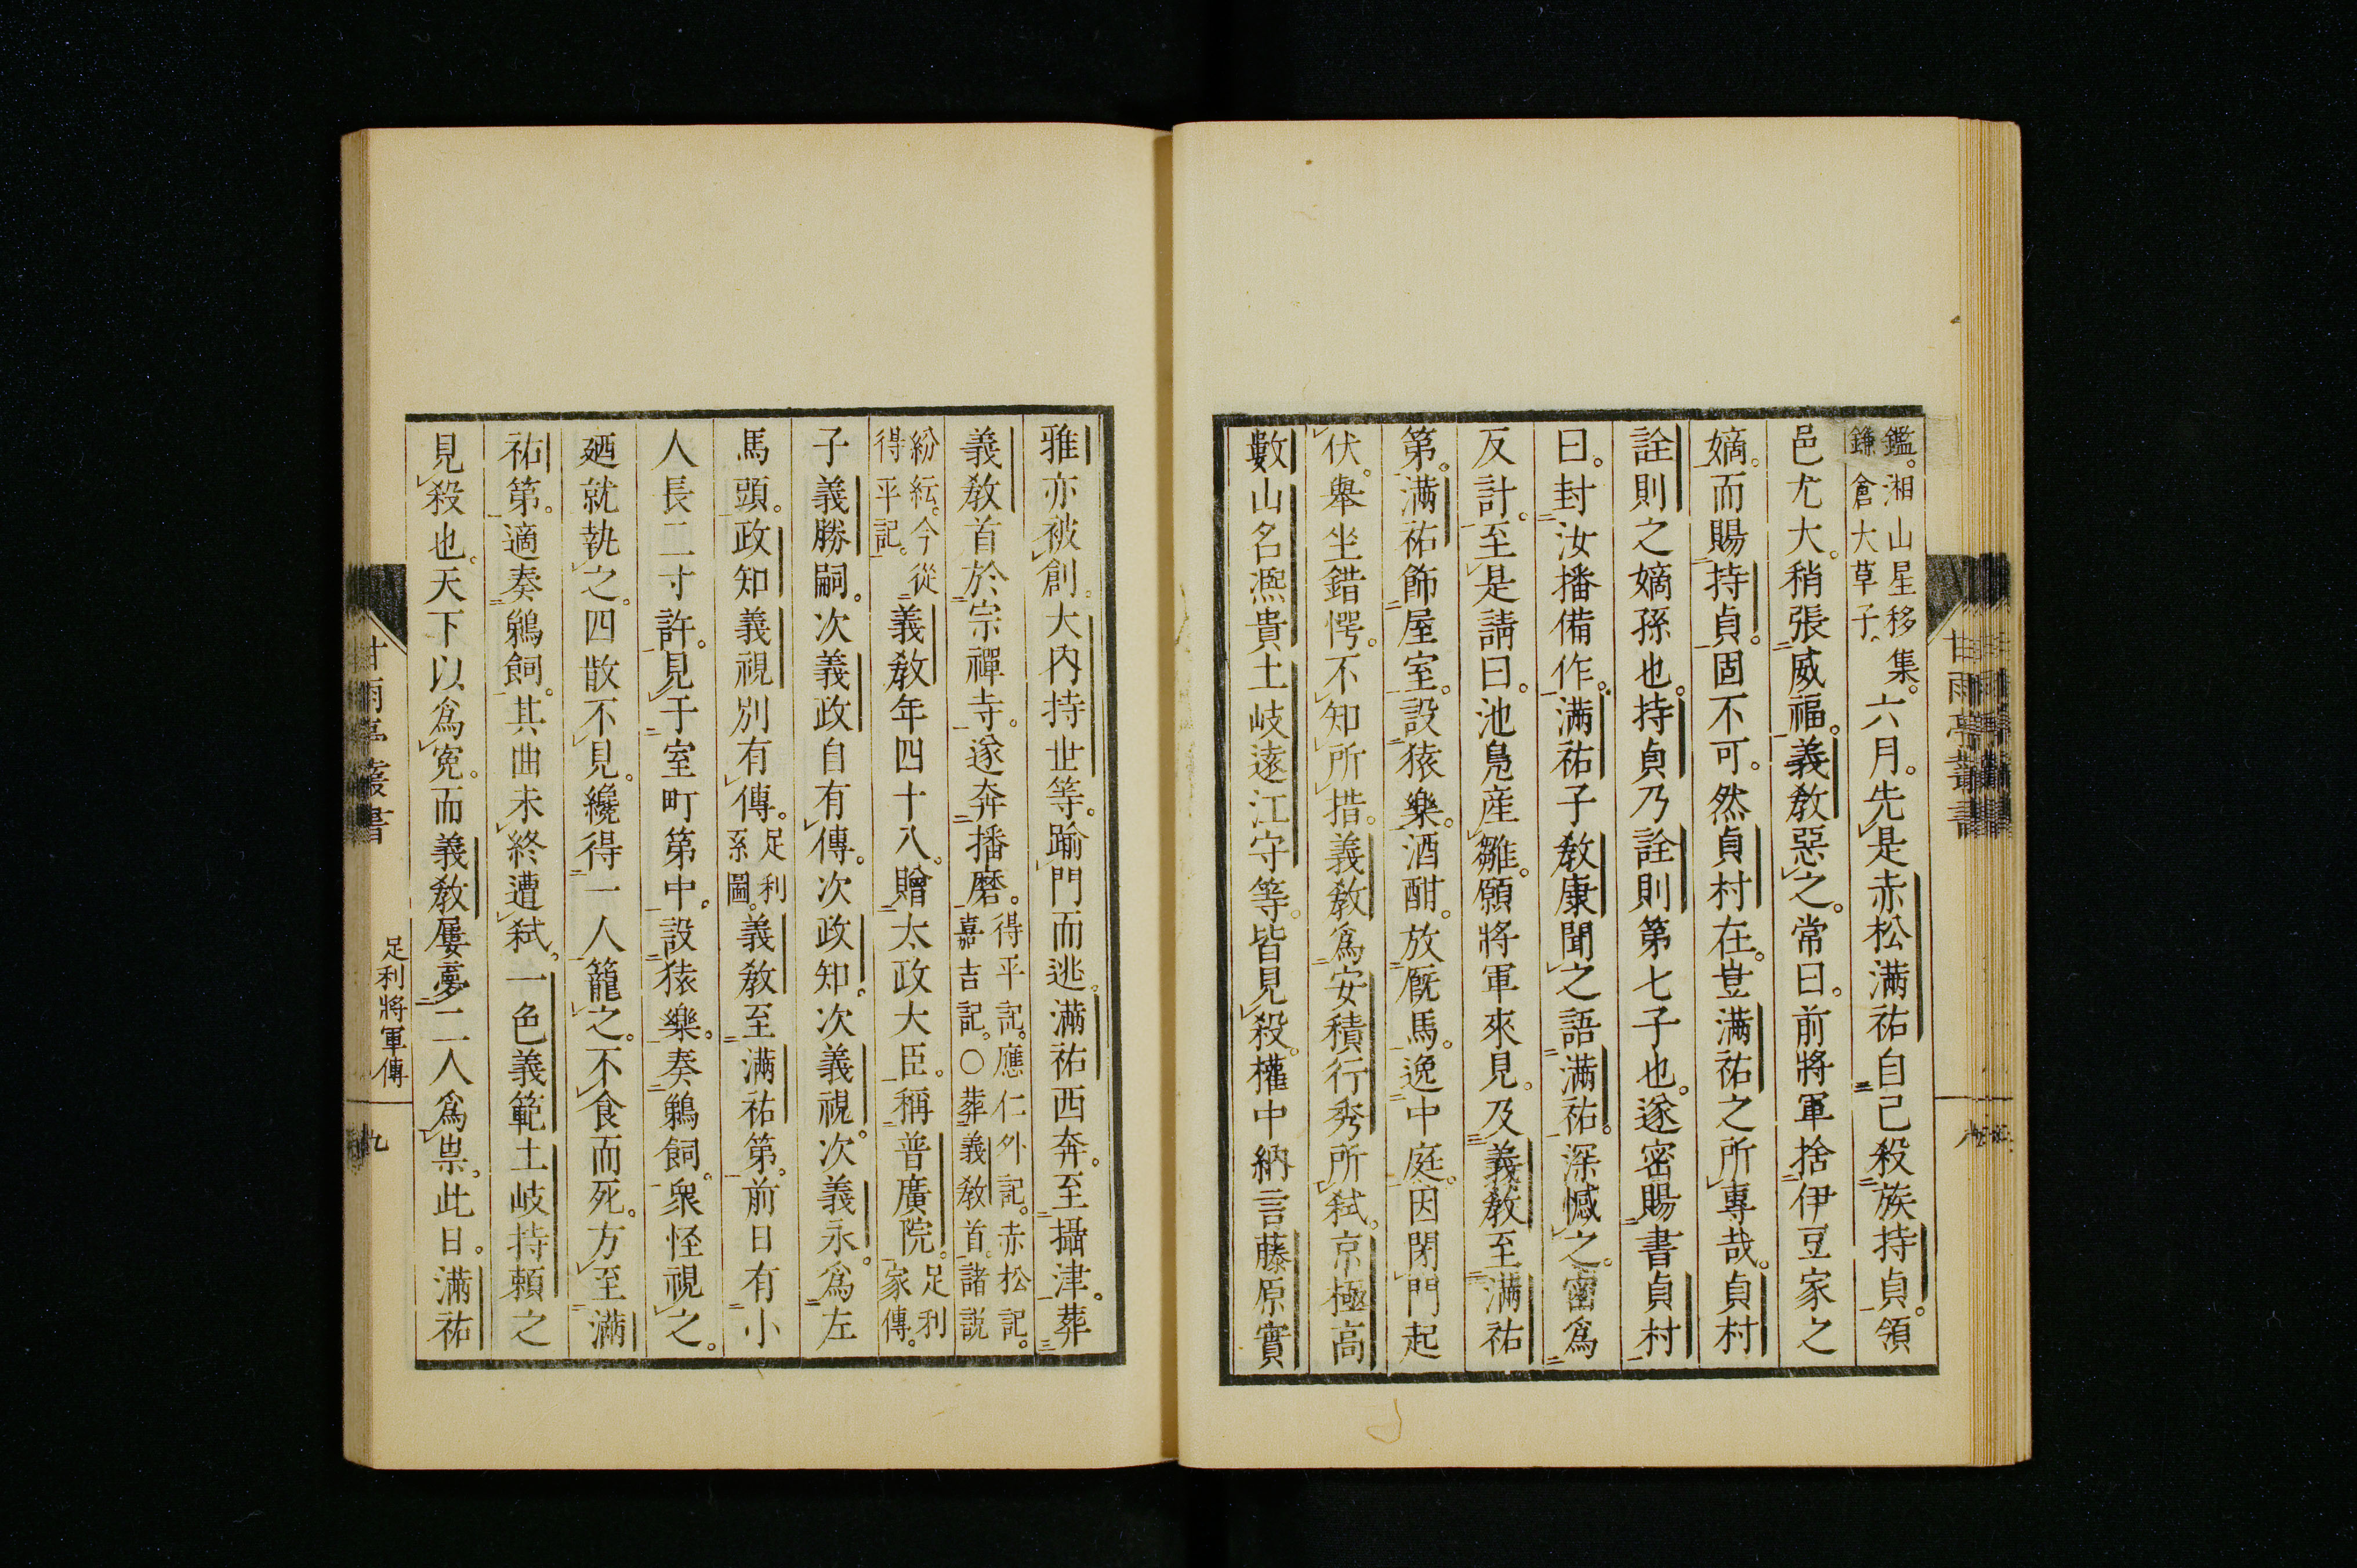 鑑。湘山星移集。
鎌倉大草子。
六月。先是赤松滿祐自己殺族持貞。領
邑尤大。稍張威福。義教惡之。常曰。前將軍捨伊豆家之
嫡。而賜持貞。固不可。然貞村在。豈滿祐之所專哉。貞村
詮則之嫡孫也。持貞乃詮則第七子也。遂密賜書貞村
曰。封汝播備作。滿祐子教康聞之語滿祐。深憾之。密爲
反計。至是請曰。池鳬産雛。願將軍來見。及義教至滿祐
第。滿祐飾屋室。設猿樂。酒酣。放厩馬。逸中庭。因閉門起
伏。擧坐錯愕。不知所措。義教爲安積行秀所弑。京極高
數山名熈貴土岐遠江守等。皆見殺。權中納言藤原實
甘雨亭叢書
八
雅亦被創。大内持世等。踰門而逃。滿祐西奔。至攝津。葬
義教首於宗禪寺。遂奔播磨。
得平記。應仁外記。赤松記。
嘉吉記。○葬義教首。諸説
紛紜。今從
得平記。
義教年四十八。贈太政大臣。稱普廣院。
足利
家傳。
子義勝嗣。次義政自有傳。次政知。次義視。次義永。爲左
馬頭。政知義視別有傳。
足利
系圖。
義教至滿祐第。前日有小
人長二寸許。見于室町第中。設猿樂。奏鵜飼。衆怪視之。
廼就執之。四散不見。纔得一人籠之。不食而死。方至滿
祐第。適奏鵜飼。其曲未終遭弑。一色義範土岐持頼之
見殺也。天下以爲寃。而義教屢夢二人爲祟。此日。滿祐
甘雨亭叢書
足利將軍傳
九